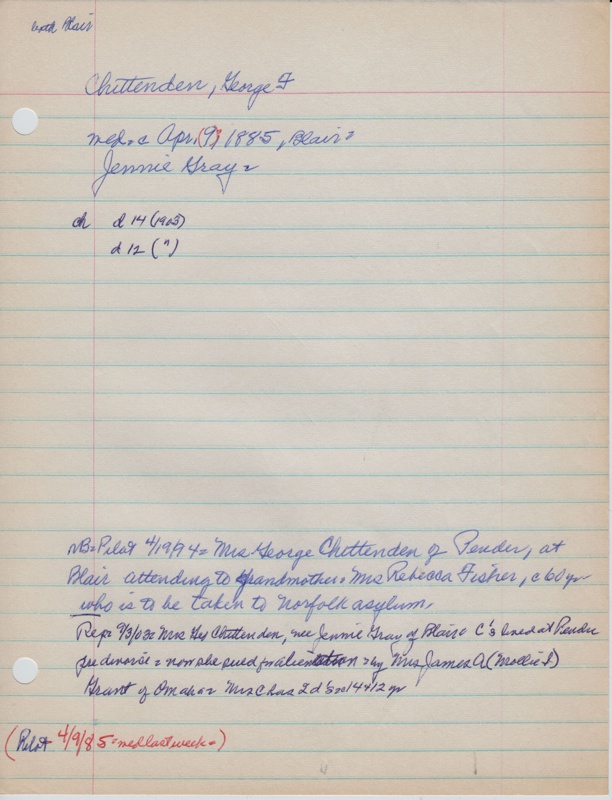 both Blair
Chittenden, George F
med = c Apr. (9) 1885, Blair =
Jennie Gray =
ch d 14 (1903)
d 12 (")
NB = Pilot 4/19/94 = Mrs George Chittenden of Pender, at
Blair attending to grandmother = Mrs Rebecca Fisher, c 60 yr
who is to be taken to Norfolk asylum.
Rep = 9/3/03 = Mrs Geo Chittenden, nee Jennie Gray of Blair = C's lived at Pender
pre divorce = now she sued for alienation = by Mrs James A (Mollie F)
Grant of Omaha = Mrs C has 2 d's = 14 + 12 yr
(Pilot 4/9/85 = med last week =)